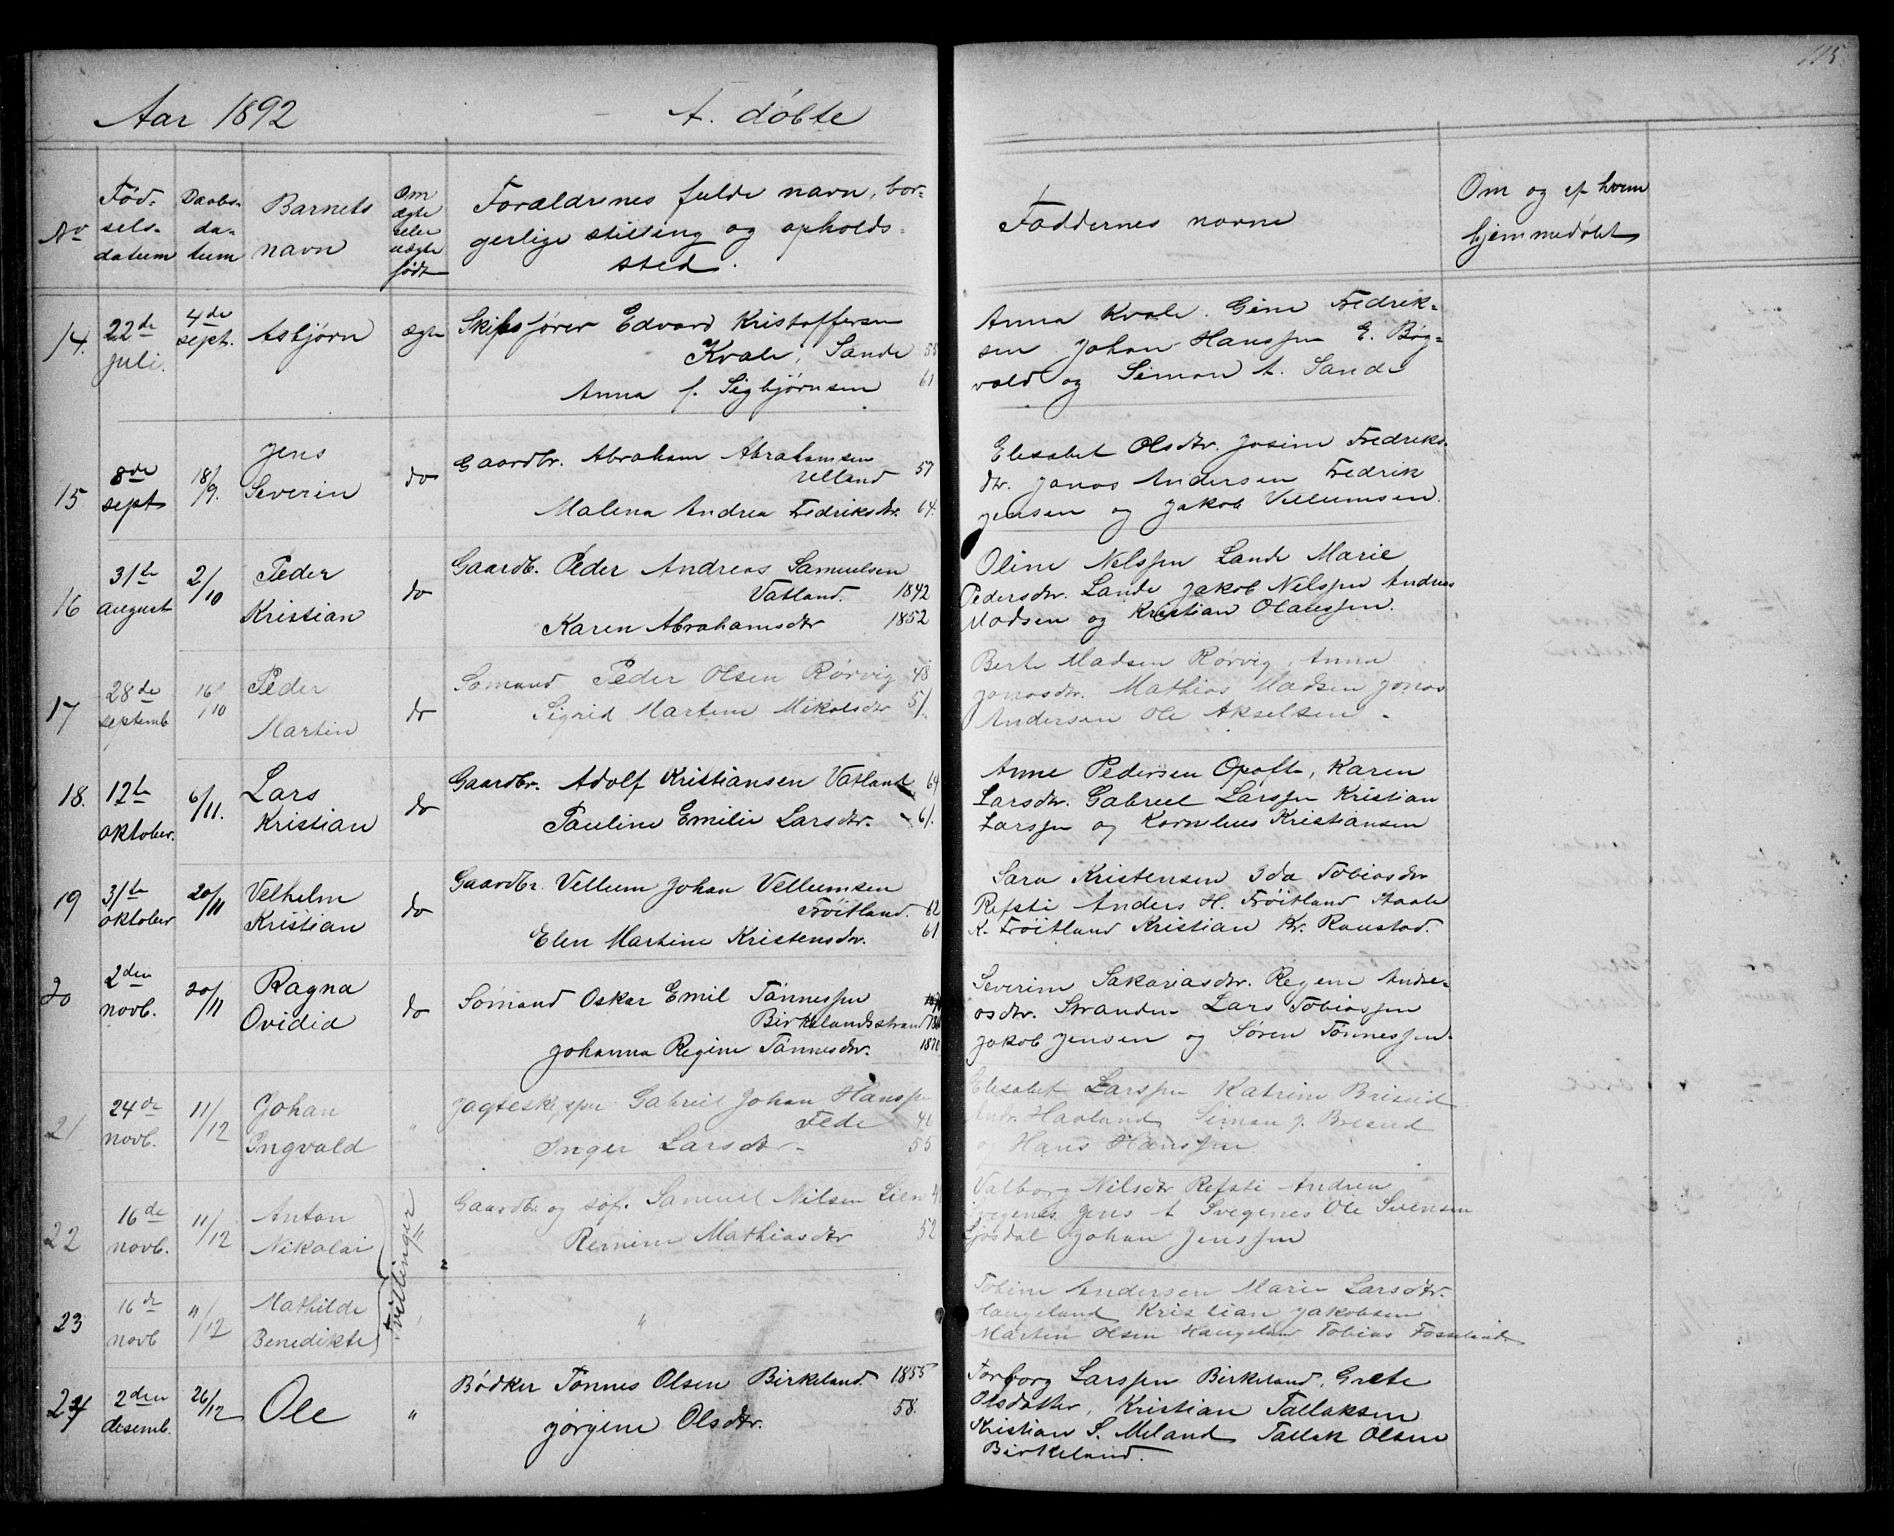 115
Aar 1892
A. døbte
No
Fød-
sels-
datum
Daabs-
da-
tum
Barnets
navn
Om
ægte
eler
uægte
født
Forældrenes fulde navn, bor-
gerlige stilling og opholds-
sted.
Faddernes navne
Om og af hvem
hjemmedøbt
14. 22de juli. 4de sept. Asbjørn ægte
Skibsfører Edvard Kristoffersen
Kvale, Sande 55
Anna f. Sigbjørnsen 61
Anna Kvale. Gine Fredrik-
sen Johan Hanssen E. Bøg-
vald og Simon A. Sande
15 8de sept 18/9. Jens Severin do
Gaardbr. Abraham Abrahamsen
Ulland 57
Malena Andrea Fredriksdtr. 64.
Elisabet Olsdtr. Josine Fredriks-
dtr. Jonas Andersen Fredrik
Jensen og Jakob Villumsen.
16 31te august 2/10 Peder Kristian do
Gaardb. Peder Andreas Samuelsen
Vatland. 1842
Karen Abrahamsdtr 1852
Oline Nelssen Lande Marie
Pedersdtr. Lande Jakob Nelssen Andreas
Madsen og Kristian Olaussen.
17 28de septemb. 16/10 Peder Martin do
Sømand Peder Olsen Rørvig 48
Sigrid Martine Mikalsdtr 51.
Berte Madsen Rørvig, Anna
Jonasdtr. Mathias Madsen Jonas
Andersen Ole Akselsen -
18. 12te oktober. 6/11. Lars Kristian do
Gaardbr. Adolf Kristiansen Vatland 64
Pauline Emilie Larsdtr. - 61.
Anne Pedersen Opofte, Karen
Larsdtr. Gabriel Larssen Kristian
Larssen og Kornelius Kristiansen
19 31te oktober 20/11 Velhelm Kristian do
Gaardbr. Vellum Johan Vellumsen
Frøitland. 62
Elen Martine Kristensdtr. 61
Sara Kristensen Ida Tobiasdtr
Refsti Anders H. Frøitland Staale
K. Frøitland Kristian Kr. Ranestad.
20 2den novb. 20/11 Ragna Ovidia do
Sømand Oskar Emil Tønnessen
Birkelandsstrand
Johanna Regine Tønnesdtr. 1870
Severine Sakariasdtr. Regine Andre-
asdtr. Stranden Lars Tobiassen
Jakob Jensen og Søren Tønnessen.
21 24de novb. 11/12 Johan Ingvald "
Jagteskipper Gabriel Johan Hanssen
Fede 41
Inger Larsdtr - 55
Elisabet Larssen Katrine Briseid
Andr. Haaland Simon J. Breseid
og Hans Hanssen
22 16de novb. 11/12 Anton Nikolai Tvillinger "
Gaardbr. og søf. Samuel Nilsen Lien
Remine Mathiasdtr 52
Valborg Nilsdtr Refsti Andrea
Svegenes Jens A Svegenes Ole Svensen
Ljosdal Johan Jenssen
23 16de novb "/12 Mathilde Benedikte "
"
Tobine Andersen Marie Larsdtr.
Haugeland Kristian Jakobsen
Martin Olsen Haugeland Tobias Fosseland
24 2den desemb. 26/12 Ole "
Bødker Tønnes Olsen Birkeland. 1855
Jørgine Olsdtr. 58.
Torborg Larssen Birkeland, Grete
Olsdatter, Kristian Tallaksen
Kristian S. Meland Tallak Olsen
Birkeland.